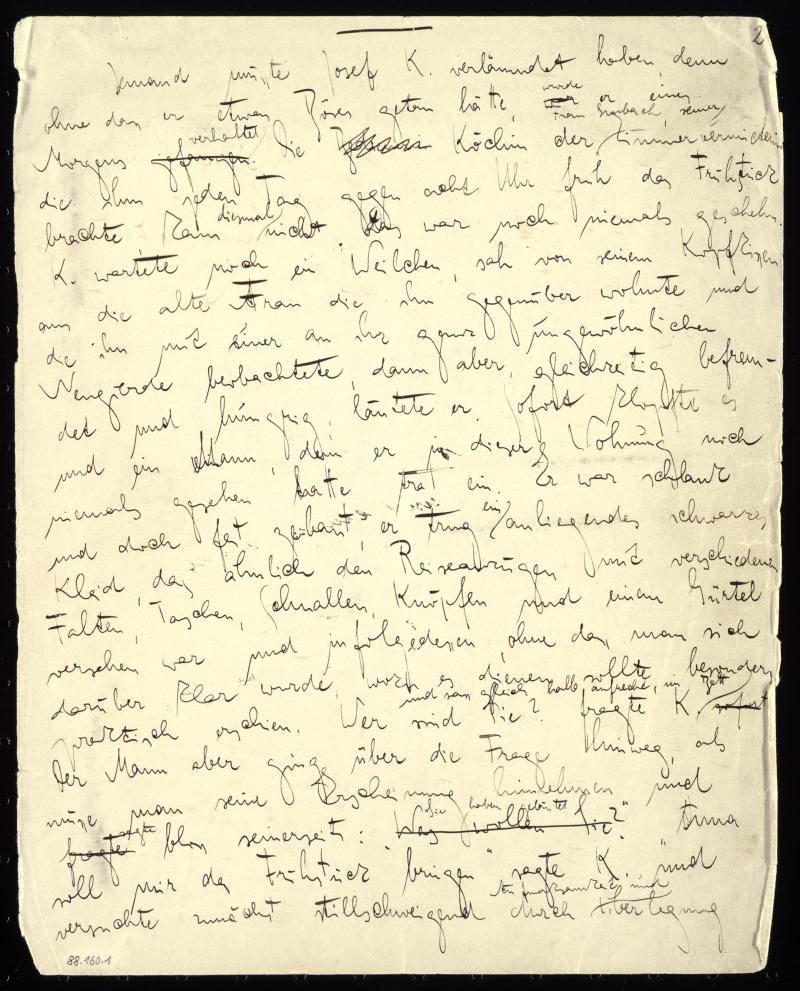 2
Jemand musste Josef K. verläumdet haben, denn
ohne dass er etwas Böses getan hätte, war wurde er eines
Morgens gefangen verhaftet. Die Köchin der Frau Grubach, seiner Zimmervermieterin
die ihm jeden Tag gegen acht Uhr früh das Frühstück
brachte, kam diesmal nicht. Das war noch niemals geschehn.
K. wartete noch ein Weilchen, sah von seinem Kopfkissen
aus die alte Frau die ihm gegenüber wohnte und
die ihn mit einer an ihr ganz ungewöhnlichen
Neugierde beobachtete, dann aber, gleichzeitig befrem-
det und hungrig, läutete er. Sofort klopfte es
und ein Mann, den er in dieser Wohnung noch
niemals gesehen hatte trat ein. Er war schlank
und doch fest gebaut, er trug ein anliegendes schwarzes
Kleid, das ähnlich den Reiseanzügen mit verschiedenen
Falten, Taschen, Schnallen, Knöpfen und einem Gürtel
versehen war und infolgedessen, ohne dass man sich
darüber klar wurde, wozu es dienen sollte, besonders
praktisch erschien. Wer sind Sie? fragte K. sofort und sass gleich halb aufrecht im Bett
Der Mann aber ging über die Frage hinweg, als
müsse man seine Erscheinung hinnehmen und
fragte sagte bloss seinerseits: "Was wollen Sie?" Sie haben geläutet "Anna
soll mir das Frühstück bringen" sagte K. und
versuchte zunächst stillschweigend durch Aufmerksamkeit und Überlegung
88.160.1